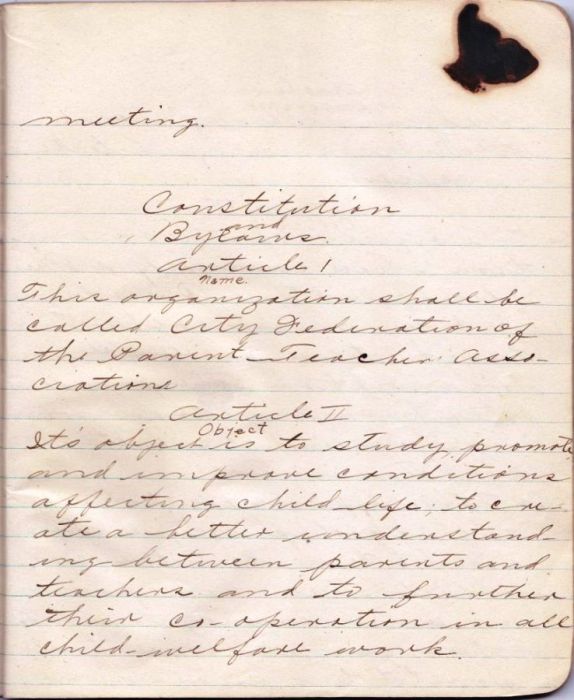 meeting.
Constitution
and
Bylaws.
Article 1
Name.
This organization shall be
called City Federation of
the Parent-Teacher Asso-
ciations
Article II
Object
It's object is to study, promote
and improve conditions
affecting child-life; to cre-
ate a better understand-
ing between parents and
teachers and to further
their co-operation in all
child-welfare work.